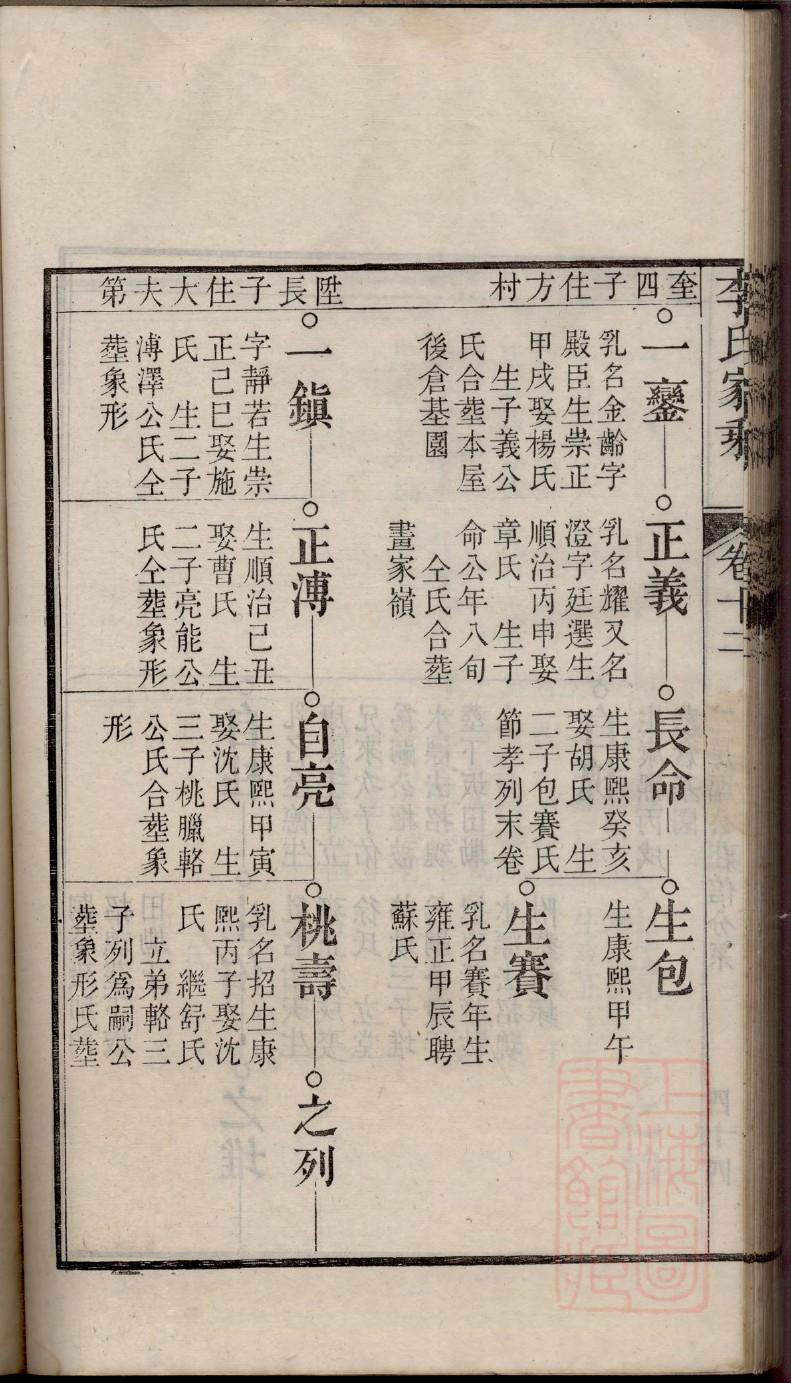 李氏家乘
卷十二
奎四子住方村
一鑾
乳名金齡字
殿臣生崇正
甲戌娶楊氏
生子義公
氏合塟本屋
後倉基園
正義
乳名耀又名
澄字廷選生
順治丙申娶
章氏　生子
命公年八旬
仝氏合塟
畫家嶺
長命
生康熙癸亥
娶胡氏　生
二子包賽氏
節孝列末卷
生包
生康熙甲午
生賽
乳名賽年生
雍正甲辰聘
蘇氏
陞長子住大夫第
一鎮
字靜若生崇
正己巳娶施
氏　生二子
溥澤公氏仝
塟象形
正溥
生順治己丑
娶曹氏　生
二子亮能公
氏仝塟象形
自亮
生康熙甲寅
娶沈氏　生
三子桃臘輅
公氏合塟象
形
桃壽
乳名招生康
熙丙子娶沈
氏　繼舒氏
立弟輅三
子列爲嗣公
塟象形氏塟
之列
上海圖
書館藏